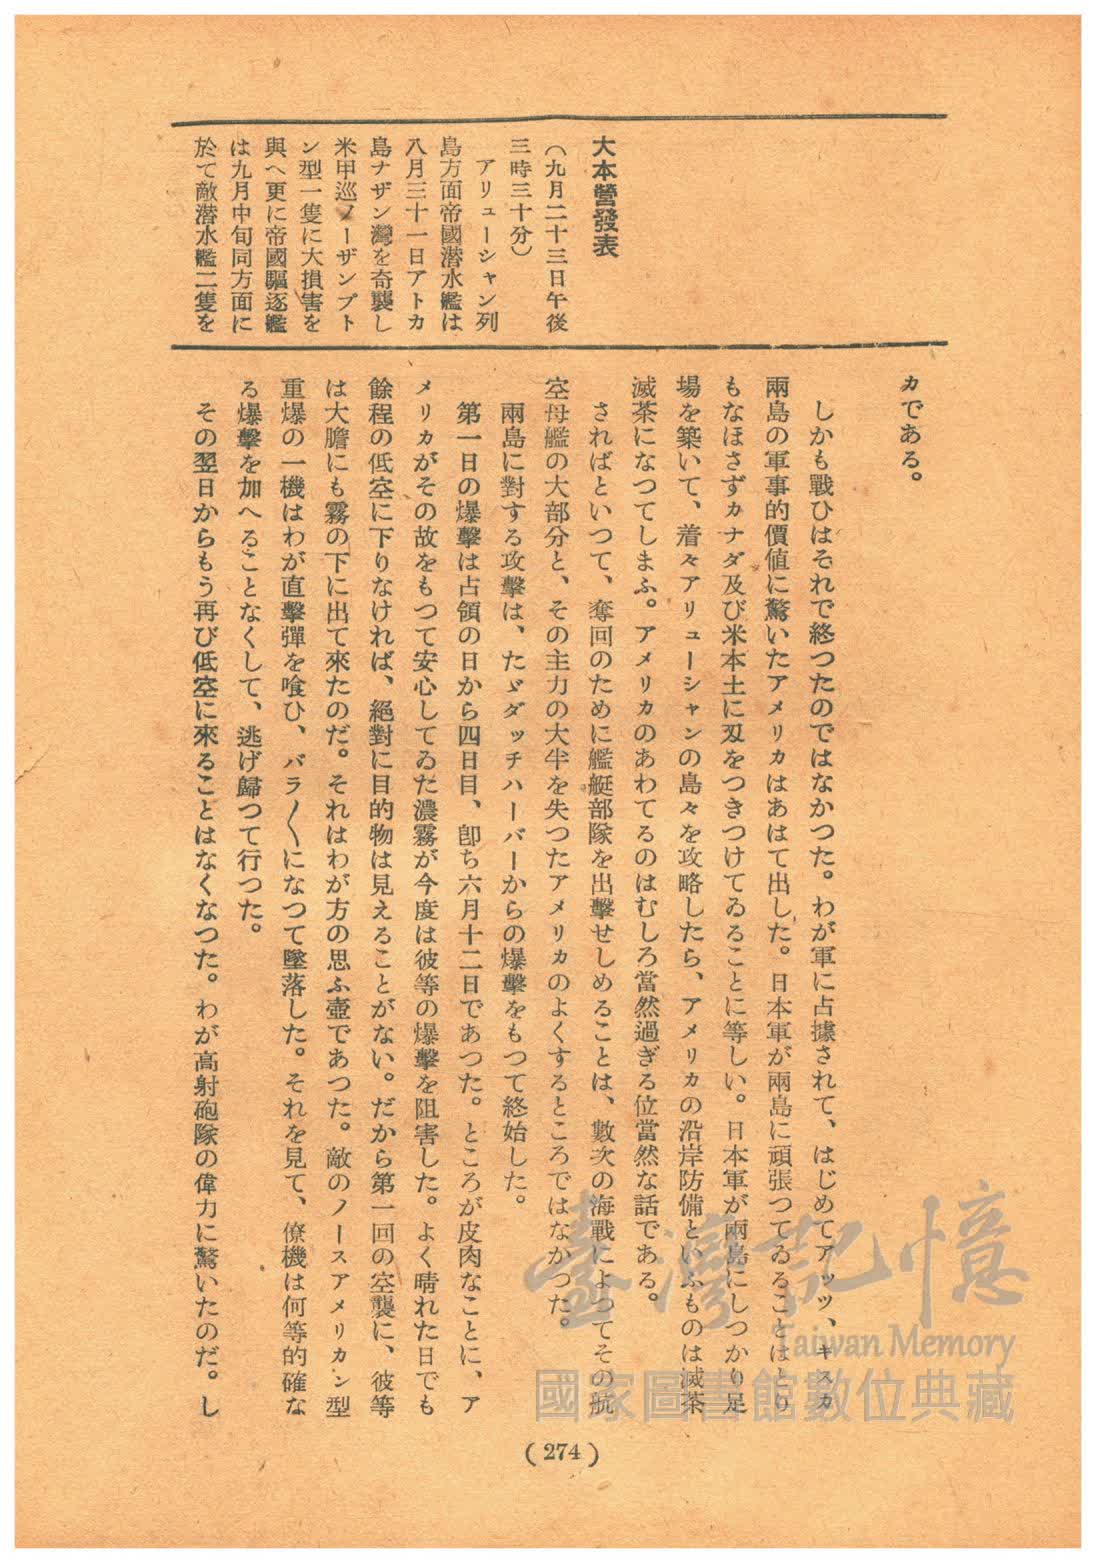 大本營發表
(九月二十三日午後
三時三十分)
アリューシャン列
島方面帝國潛水艦は
八月三十一日アトカ
島ナザン灣を奇襲し
米甲巡ノーザンプト
ン型一隻に大損害を
與へ更に帝國驅逐艦
は九月中旬同方面に
於て敵潛水艦二隻を
カである。
しかも戰ひはそれで終つたのではなかつた。わが軍に占據されて、はじめてアッツ、キスカ
兩島の軍事的價値に驚いたアメリカはあはて出した。日本軍が兩島に頑張つてゐることはとり
もなほさずカナダ及び米本土に刄をつきつけてゐることに等しい。日本軍が兩島にしつかり足
場を築いて、着々アリューシャンの島々を攻略したら、アメリカの沿岸防備といふものは滅茶
滅茶になつてしまふ。アメリカのあわてるのはむしろ當然過ぎる位當然な話である。
さればといつて、奪回のために艦艇部隊を出擊せしめることは、數次の海戰によつてその航
空母艦の大部分と、その主力の大半を失つたアメリカのよくするところではなかつた。
兩島に對する攻擊は、たゞダッチハーバーからの爆擊をもつて終始した。
第一日の爆擊は占領の日から四日目、卽ち六月十二日であつた。ところが皮肉なことに、ア
メリカがその故をもつて安心してゐた濃霧が今度は彼等の爆擊を阻害した。よく晴れた日でも
餘程の低空に下りなければ、絕對に目的物は見えることがない。だから第一回の空襲に、彼等
は大膽にも霧の下に出て來たのだ。それはわが方の思ふ壺であつた。敵のノースアメリカン型
重爆の一機はわが直擊彈を喰ひ、バラ〳〵になつて墜落した。それを見て、僚機は何等的確な
る爆擊を加へることなくして、逃げ歸つて行つた。
その翌日からもう再び低空に來ることはなくなつた。わが高射砲隊の偉力に驚いたのだ。し
(274)
臺灣記憶
Taiwan Memory
國家圖書館數位典藏